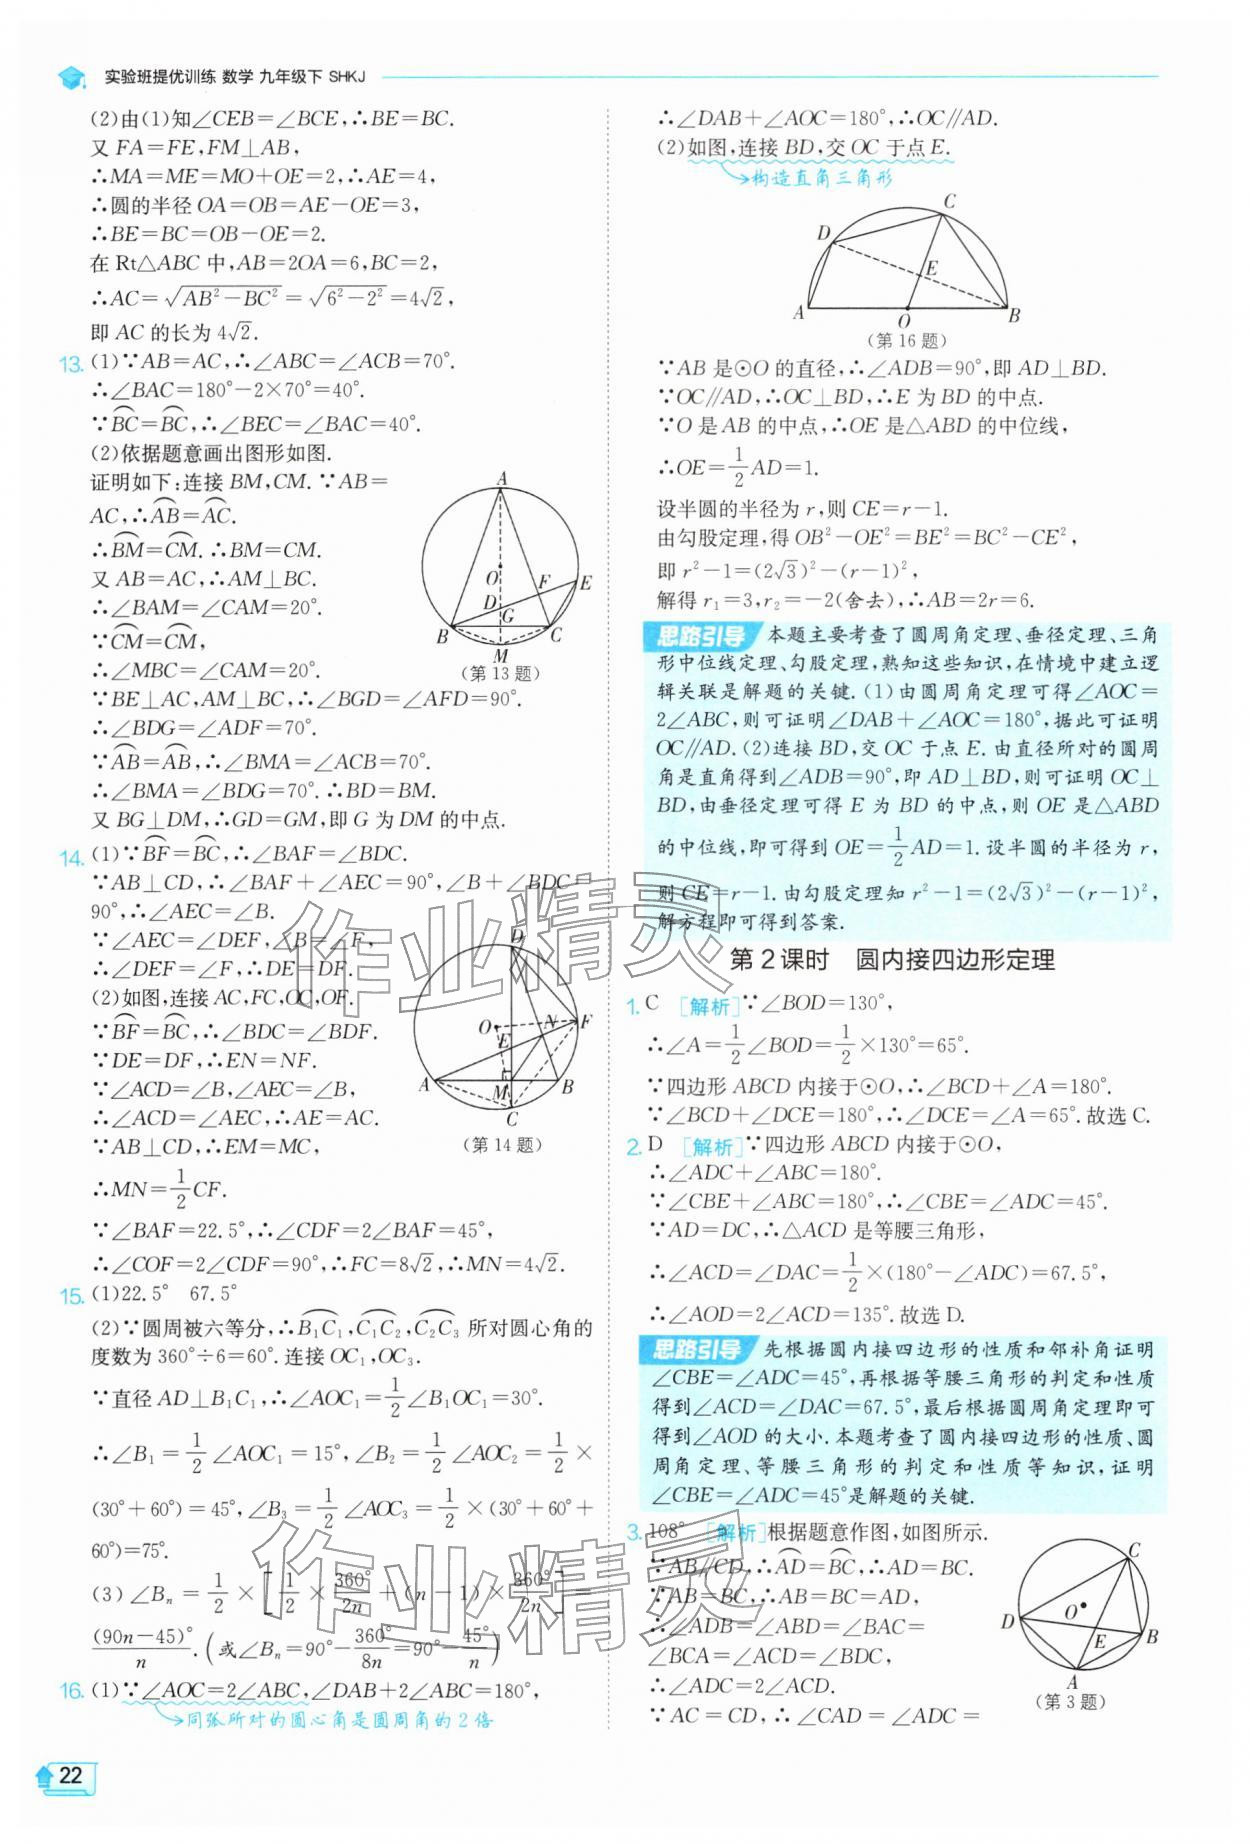 实验班提优训练 数学 九年级下 SHKJ
(2)由(1)知∠CEB=∠BCE,∴BE=BC.
又 FA=FE,FM⊥AB,
∴MA=ME=MO+OE=2,∴AE=4,
∴圆的半径 OA=OB=AE-OE=3,
∴BE=BC=OB-OE=2.
在 Rt△ABC 中,AB=2OA=6,BC=2,
∴AC=√(AB²-BC²)=√(6²-2²)=4√2,
即 AC 的长为 4√2.
13. (1)∵AB=AC,∴∠ABC=∠ACB=70°.
∴∠BAC=180°-2×70°=40°.
∵⌒BC=⌒BC,∴∠BEC=∠BAC=40°.
(2)依据题意画出图形如图.
证明如下:连接 BM,CM.∵AB=
AC,∴⌒AB=⌒AC.
∴⌒BM=⌒CM.∴BM=CM.
又 AB=AC,∴AM⊥BC.
∴∠BAM=∠CAM=20°.
∵⌒CM=⌒CM,
∴∠MBC=∠CAM=20°.
A
O
F
E
D
G
B
C
M
(第 13 题)
∵BE⊥AC,AM⊥BC,∴∠BGD=∠AFD=90°.
∴∠BDG=∠ADF=70°.
∵⌒AB=⌒AB,∴∠BMA=∠ACB=70°.
∴∠BMA=∠BDG=70°.∴BD=BM.
又 BG⊥DM,∴GD=GM,即 G 为 DM 的中点.
14. (1)∵⌒BF=⌒BC,∴∠BAF=∠BDC.
∵AB⊥CD,∴∠BAF+∠AEC=90°,∠B+∠BDC=
90°,∴∠AEC=∠B.
∵∠AEC=∠DEF,∠B=∠F,
∴∠DEF=∠F,∴DE=DF.
(2)如图,连接 AC,FC,OC,OF.
∵⌒BF=⌒BC,∴∠BDC=∠BDF.
∵DE=DF,∴EN=NF.
∵∠ACD=∠B,∠AEC=∠B,
∴∠ACD=∠AEC,∴AE=AC.
∵AB⊥CD,∴EM=MC,
∴MN=1/2CF.
D
O
E
N
F
A
M
B
C
(第 14 题)
∵∠BAF=22.5°,∴∠CDF=2∠BAF=45°,
∴∠COF=2∠CDF=90°,∴FC=8√2,∴MN=4√2.
15. (1)22.5° 67.5°
(2)∵圆周被六等分,∴⌒B₁C₁,⌒C₁C₂,⌒C₂C₃ 所对圆心角的
度数为 360°÷6=60°.连接 OC₁,OC₃.
∵直径 AD⊥B₁C₁,∴∠AOC₁=1/2∠B₁OC₁=30°.
∴∠B₁=1/2∠AOC₁=15°,∠B₂=1/2∠AOC₂=1/2×
(30°+60°)=45°,∠B₃=1/2∠AOC₃=1/2×(30°+60°+
60°)=75°.
(3)∠Bₙ=1/2×[1/2×360°/2n+(n-1)×360°/2n]=
(90n-45)°/n.(或∠Bₙ=90°-360°/8n=90°-45°/n)
16. (1)∵∠AOC=2∠ABC,∠DAB+2∠ABC=180°,
同弧所对的圆心角是圆周角的 2 倍
22
∴∠DAB+∠AOC=180°,∴OC∥AD.
(2)如图,连接 BD,交 OC 于点 E.
构造直角三角形
C
D
E
A
O
B
(第 16 题)
∵AB 是⊙O 的直径,∴∠ADB=90°,即 AD⊥BD.
∵OC∥AD,∴OC⊥BD,∴E 为 BD 的中点.
∵O 是 AB 的中点,∴OE 是△ABD 的中位线,
∴OE=1/2AD=1.
设半圆的半径为 r,则 CE=r-1.
由勾股定理,得 OB²-OE²=BE²=BC²-CE²,
即 r²-1=(2√3)²-(r-1)²,
解得 r₁=3,r₂=-2(舍去),∴AB=2r=6.
思路引导 本题主要考查了圆周角定理、垂径定理、三角
形中位线定理、勾股定理,熟知这些知识,在情境中建立逻
辑关联是解题的关键.(1)由圆周角定理可得∠AOC=
2∠ABC,则可证明∠DAB+∠AOC=180°,据此可证明
OC∥AD.(2)连接 BD,交 OC 于点 E.由直径所对的圆周
角是直角得到∠ADB=90°,即 AD⊥BD,则可证明 OC⊥
BD,由垂径定理可得 E 为 BD 的中点,则 OE 是△ABD
的中位线,即可得到 OE=1/2AD=1.设半圆的半径为 r,
则 CE=r-1.由勾股定理知 r²-1=(2√3)²-(r-1)²,
解方程即可得到答案.
第 2 课时 圆内接四边形定理
1. C [解析]∵∠BOD=130°,
∴∠A=1/2∠BOD=1/2×130°=65°.
∵四边形 ABCD 内接于⊙O,∴∠BCD+∠A=180°.
∵∠BCD+∠DCE=180°,∴∠DCE=∠A=65°.故选 C.
2. D [解析]∵四边形 ABCD 内接于⊙O,
∴∠ADC+∠ABC=180°.
∵∠CBE+∠ABC=180°,∴∠CBE=∠ADC=45°.
∵AD=DC,∴△ACD 是等腰三角形,
∴∠ACD=∠DAC=1/2×(180°-∠ADC)=67.5°,
∴∠AOD=2∠ACD=135°.故选 D.
思路引导 先根据圆内接四边形的性质和邻补角证明
∠CBE=∠ADC=45°,再根据等腰三角形的判定和性质
得到∠ACD=∠DAC=67.5°,最后根据圆周角定理即可
得到∠AOD 的大小.本题考查了圆内接四边形的性质、圆
周角定理、等腰三角形的判定和性质等知识,证明
∠CBE=∠ADC=45°是解题的关键.
3. 108° [解析]根据题意作图,如图所示.
∵AB∥CD,∴⌒AD=⌒BC,∴AD=BC.
∵AB=BC,∴AB=BC=AD,
∴∠ADB=∠ABD=∠BAC=
∠BCA=∠ACD=∠BDC,
∴∠ADC=2∠ACD.
∵AC=CD,∴∠CAD=∠ADC=
C
O
D
E
B
A
(第 3 题)
作业精灵
作业精灵